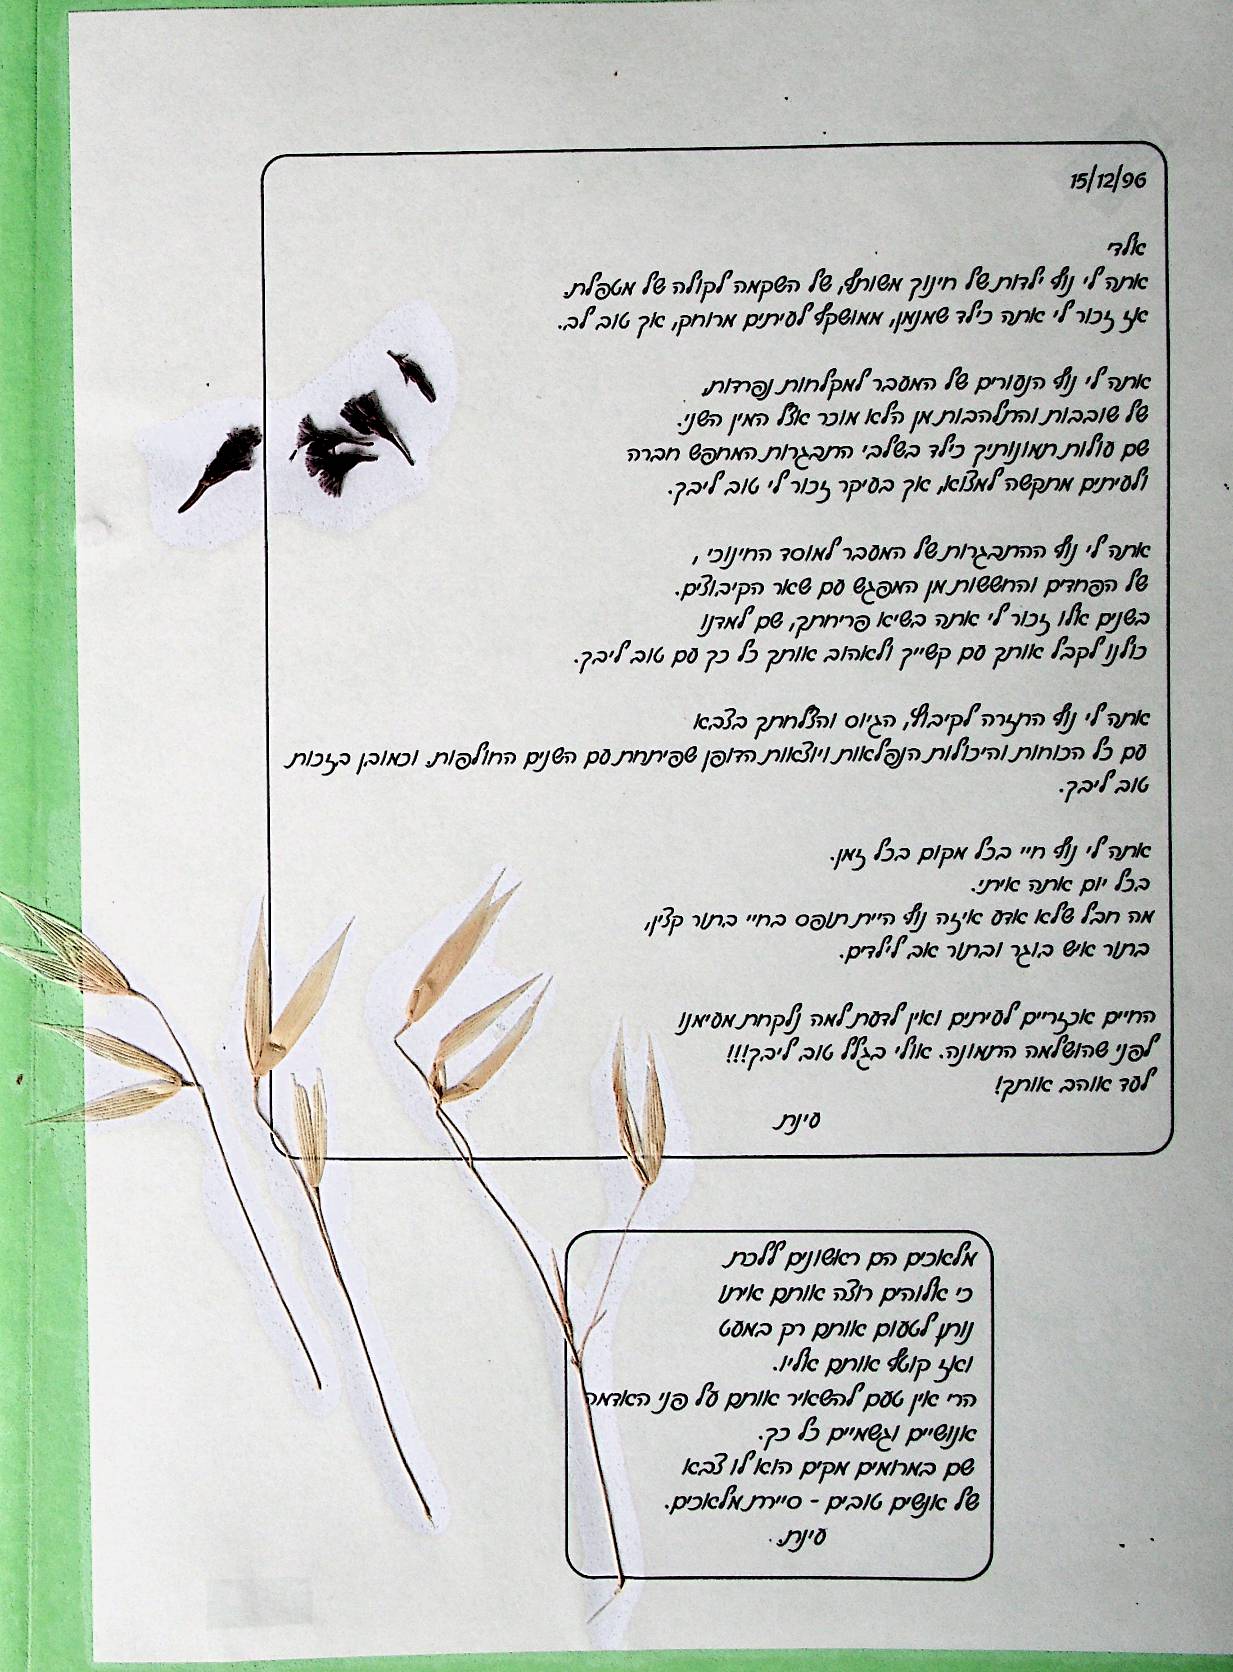 15/12/96
אלדי
אתה לי נוף ילדות של חינוך משותף, של השקמה לקולה של מטפלת.
אז זכור לי אתה כילד שמנמן, ממושקף לעיתים מרוחק, אך טוב לב.
אתה לי נוף הנעורים של המעבר למקלחות נפרדות,
של שובבות והתלהבות מן הלא מוכר אצל המין השני.
שם עולות תמונותיך כילד בשלבי התבגרות המחפש חברה
ולעיתים מתקשה למצוא, אך בעיקר זכור לי טוב ליבך.
אתה לי נוף ההתבגרות של המעבר למוסד החינוכי ,
של הפחדים והחששות מן המפגש עם שאר הקיבוצים.
בשנים אלו זכור לי אתה בשיא פריחתך, שם למדנו
כולנו לקבל אותך עם קשייך ולאהוב אותך כל כך עם טוב ליבך.
אתה לי נוף החזרה לקיבוץ, הגיוס והצלחתך בצבא
עם כל הכוחות והיכולות הנפלאות ויוצאות הדופן שפיתחת עם השנים החולפות. וכמובן בזכות
טוב ליבך.
אתה לי נוף חיי בכל מקום בכל זמן.
בכל יום אתה איתי.
מה חבל שלא אדע איזה נוף היית תופס בחיי בתור קצין,
בתור איש בוגר ובתור אב לילדים.
החיים אכזריים לעיתים ואין לדעת למה נלקחת מעימנו
לפני שהושלמה התמונה. אולי בגלל טוב ליבך!!!
לעד אוהב אותך!
עינת
מלאכים הם ראשונים ללכת
כי אלוהים רוצה אותם איתו
נותן לטעום אותם רק במעט
ואז קוטף אותם אליו.
הרי אין טעם להשאיר אותם על פני האדמה
אנושיים וגשמיים כל כך.
שם במרומים מקים הוא לו צבא
של אנשים טובים - סיירת מלאכים.
עינת.